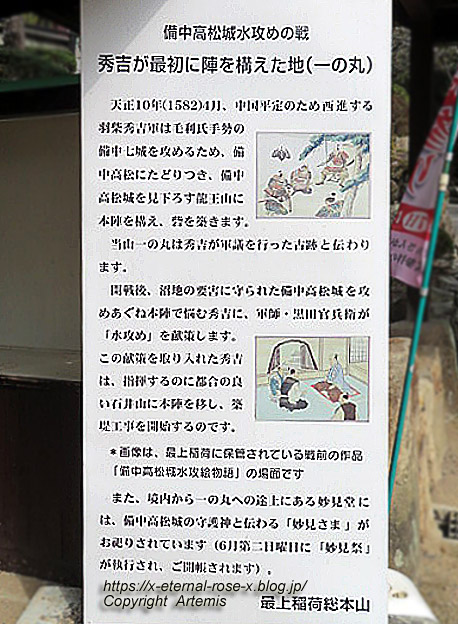 備中高松城水攻めの戦
秀吉が最初に陣を構えた地(一の丸)
天正10年(1582)4月、中国平定のため西進する
羽柴秀吉軍は毛利氏手勢の
備中七城を攻めるため、備
中高松にたどりつき、備中
高松城を見下ろす龍王山に
本陣を構え、砦を築きます。
当山一の丸は秀吉が軍議を行った古跡と伝わり
ます。
開戦後、沼地の要害に守られた備中高松城を攻
めあぐね本陣で悩む秀吉に、軍師・黒田官兵衛が
「水攻め」を献策します。
この献策を取り入れた秀吉
は、指揮するのに都合の良
い石井山に本陣を移し、築
堤工事を開始するのです。
*画像は、最上稲荷に保管されている戦前の作品
「備中高松城水攻絵物語」の場面です
また、境内から一の丸への途上にある妙見堂に
は、備中高松城の守護神と伝わる「妙見さま」が
お祀りされています(6月第二日曜日に「妙見祭」
が執行され、ご開帳されます)。
最上稲荷総本山
https://x-eternal-rose-x.blog.jp/
Copyright Artemis